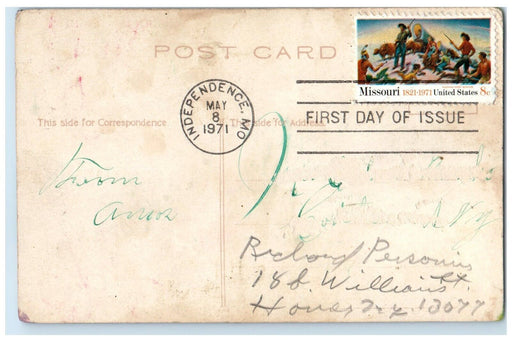 POST CARD
Missouri 1821-1971 United States 8c
INDEPENDENCE, MO
MAY
8
1971
FIRST DAY OF ISSUE
This side for Correspondence
This side for Address
From
N.Y.
Richard
18 William St.
Homer N.Y. 13077